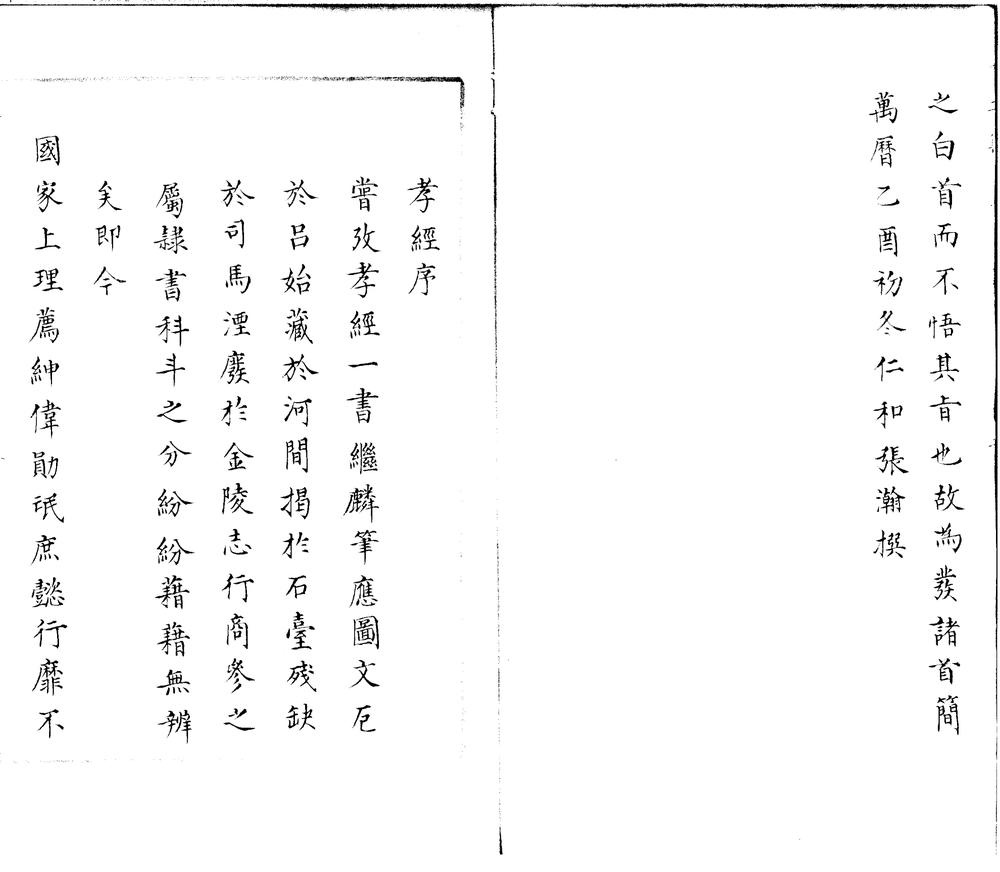 之白首而不悟其㫖也故為發諸首簡
萬曆乙酉初冬仁和張瀚撰
孝經序
嘗攷孝經一書繼麟筆應圖文厄
於呂始藏於河間揭於石臺殘缺
於司馬湮廢於金陵志行商參之
屬隸書科斗之分紛紛藉藉無辨
矣即今
國家上理薦紳偉勛氓庶懿行靡不